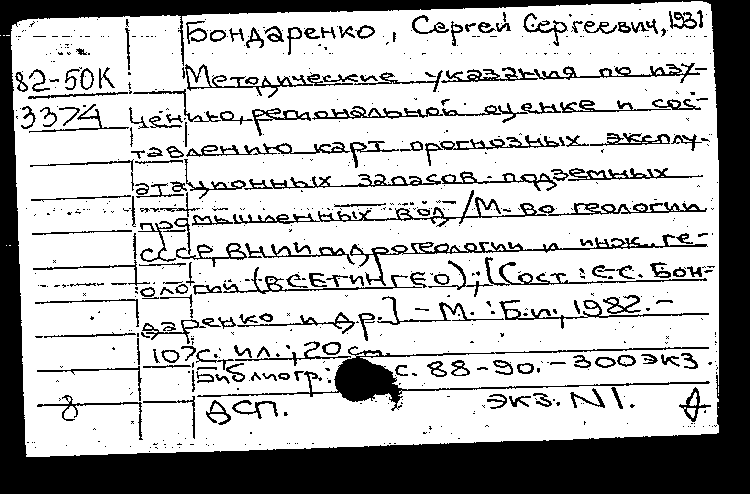 Бондаренко, Сергей Сергеевич, 1931
82-50К Методические указания по изу-
3374 чению, региональной оценке и сос-
тавлению карт прогнозных эксплу-
атационных запасов подземных
промышленных вод / М-во геологии
СССР, ВНИИ гидрогеологии и инж. ге-
ологии (ВСЕГИНГЕО); [Сост.: С.С. Бон-
даренко и др.] - М. : Б.и., 1982. -
107с.; ил.; 20 см.
Библиогр.: с. 88-90. - 300 экз.
8 ДСП. экз. N1.